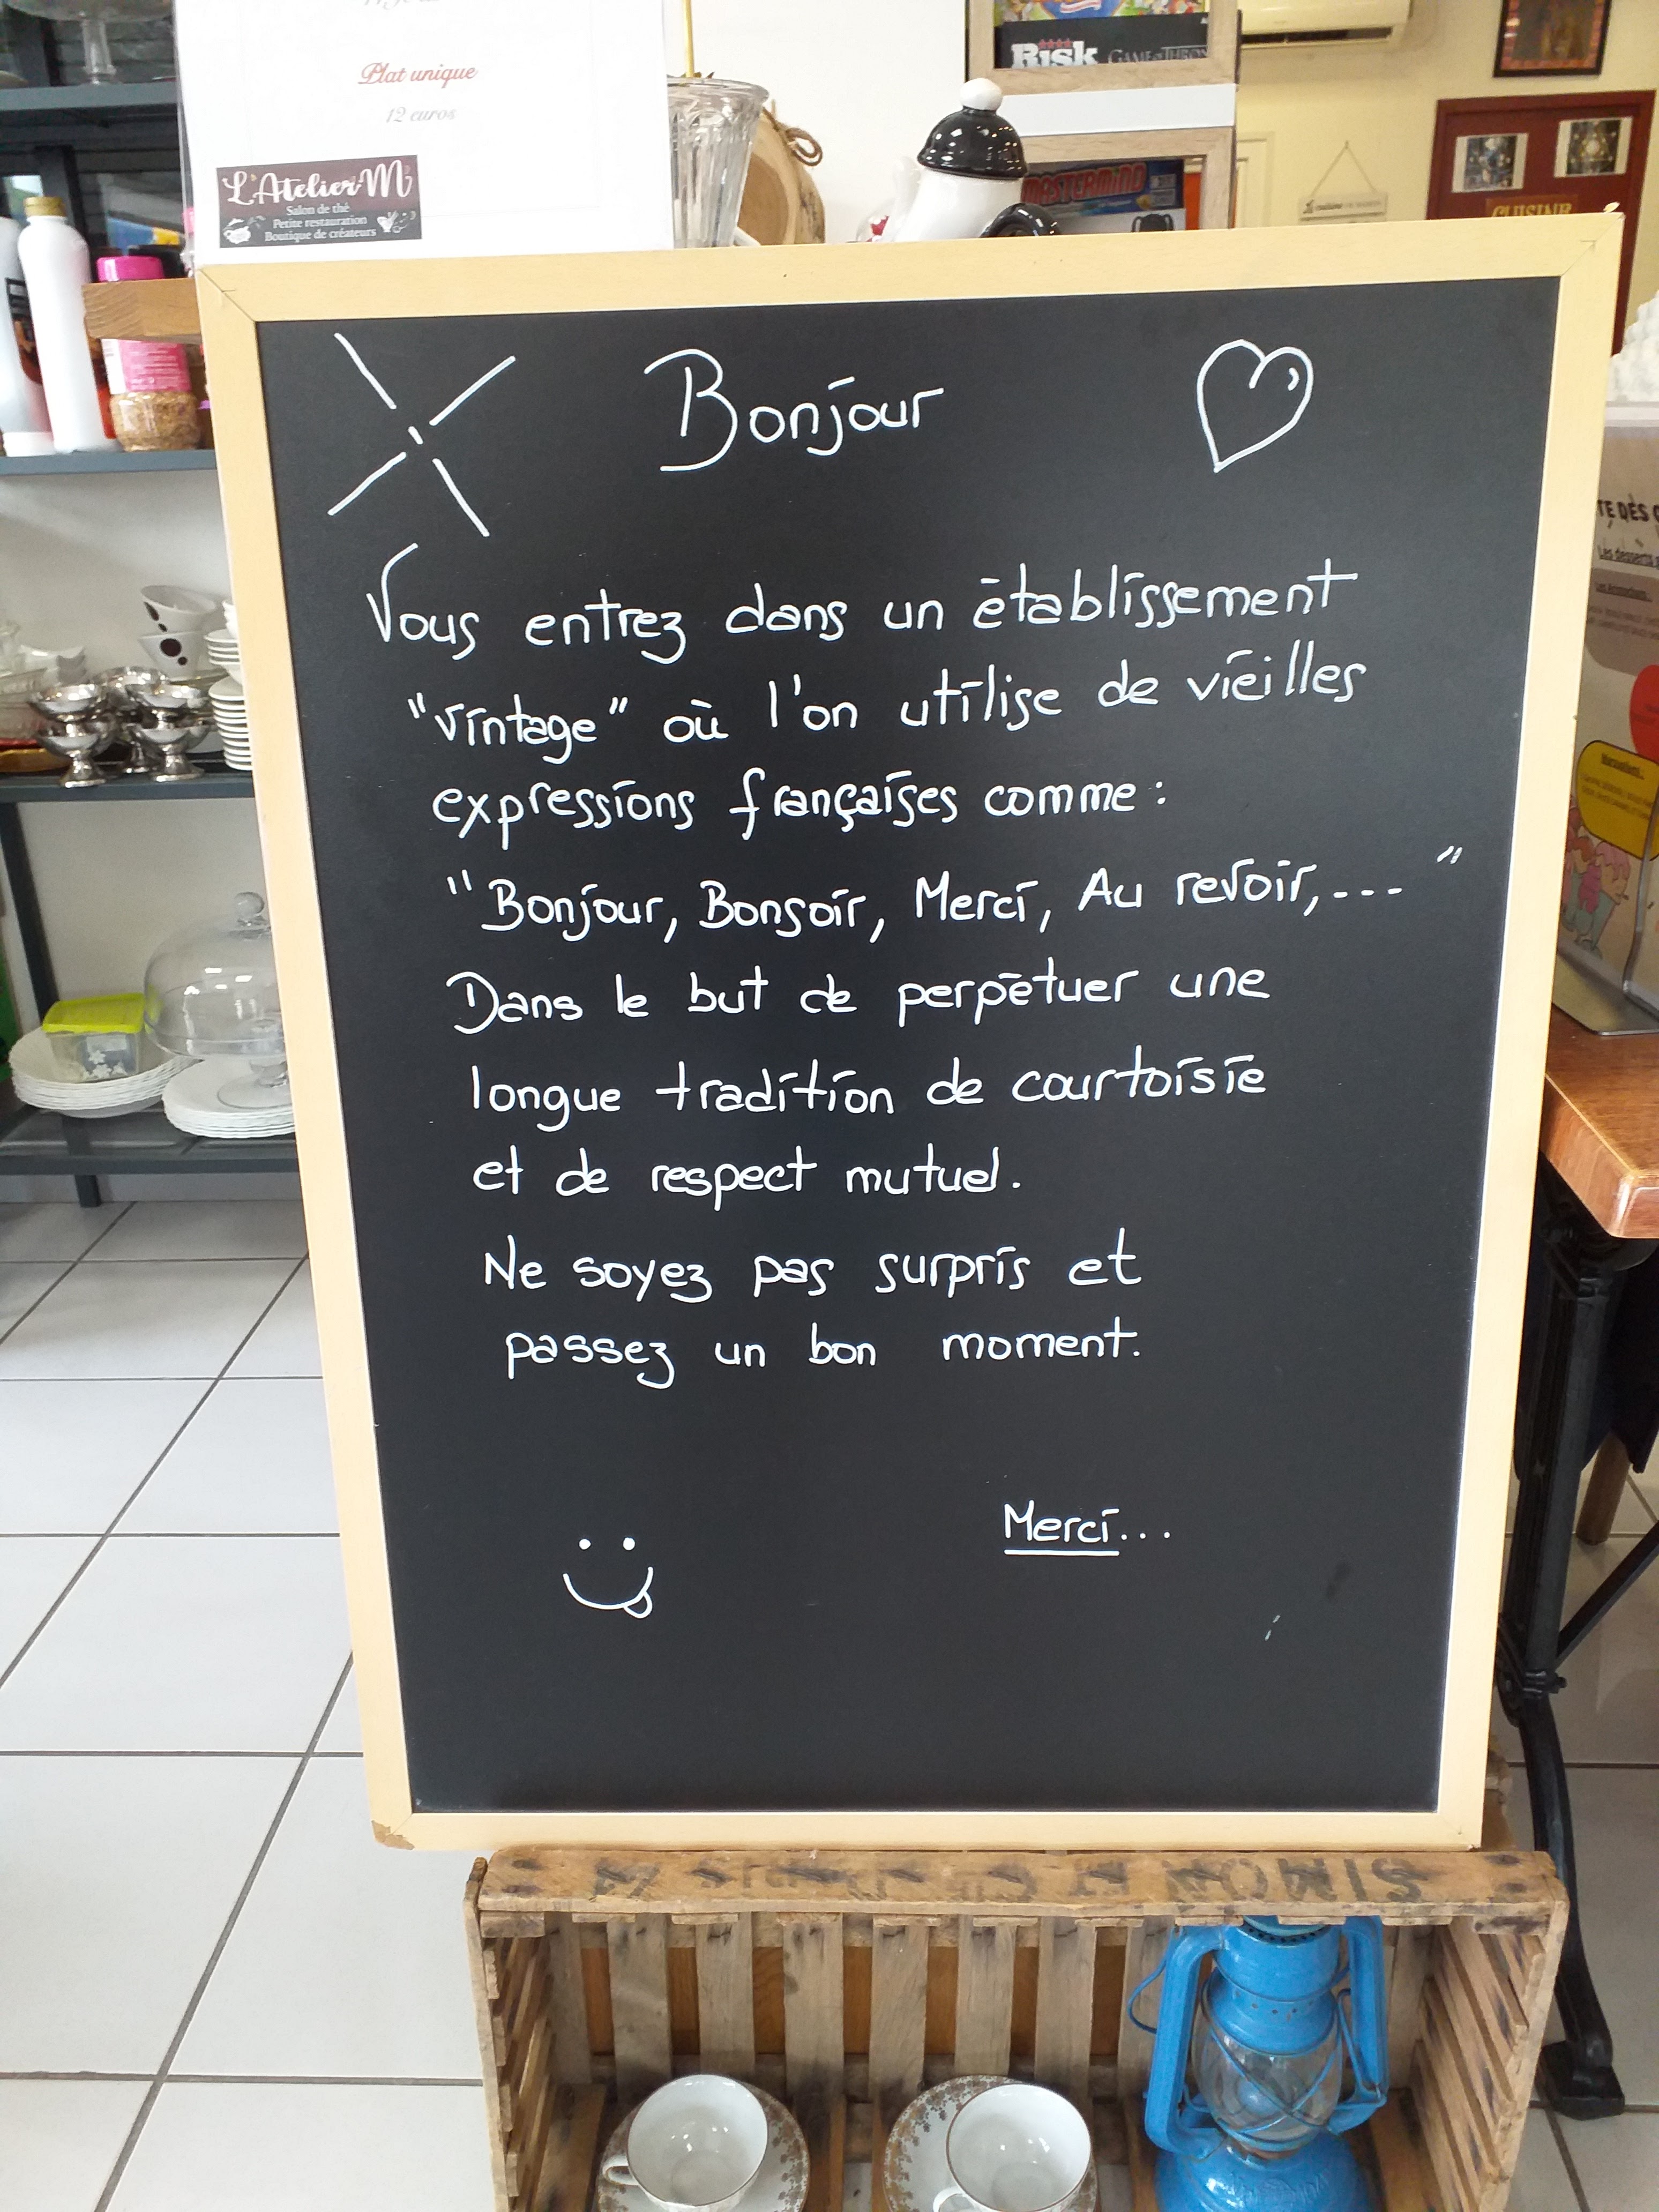 Plat unique
12 euros
L'Atelier M
Salon de thé
Petite restauration
Boutique de créateurs
RISK GAME OF THRONES
MASTERMIND
CUISINE
Bonjour
Vous entrez dans un établissement
"Vintage" où l'on utilise de vieilles
expressions françaises comme :
"Bonjour, Bonsoir, Merci, Au revoir,... "
Dans le but de perpétuer une
longue tradition de courtoisie
et de respect mutuel.
Ne soyez pas surpris et
passez un bon moment.
Merci...
SIMON
Les desserts